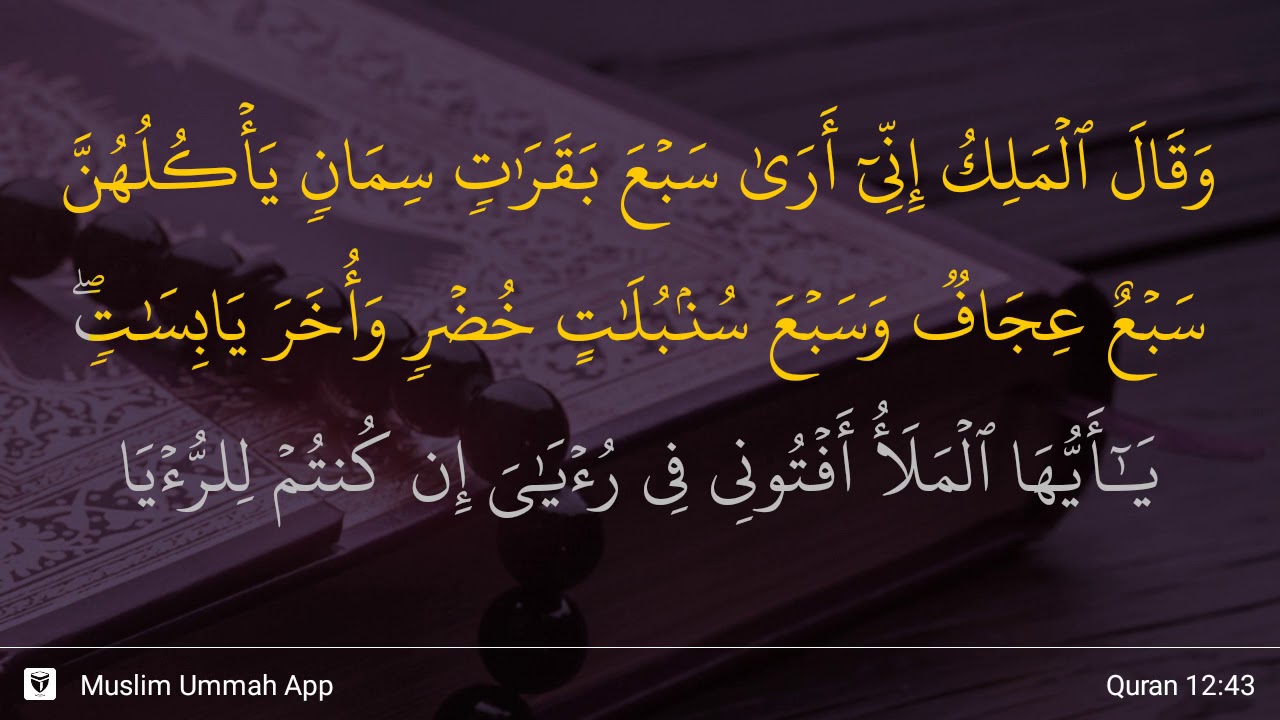 وَقَالَ ٱلۡمَلِكُ إِنِّيٓ أَرَىٰ سَبۡعَ بَقَرَٰتٖ سِمَانٖ يَأۡكُلُهُنَّ
سَبۡعٌ عِجَافٞ وَسَبۡعَ سُنۢبُلَٰتٍ خُضۡرٖ وَأُخَرَ يَابِسَٰتٖۖ
يَٰٓأَيُّهَا ٱلۡمَلَأُ أَفۡتُونِي فِي رُءۡيَٰيَ إِن كُنتُمۡ لِلرُّءۡيَا
Muslim Ummah App
Quran 12:43